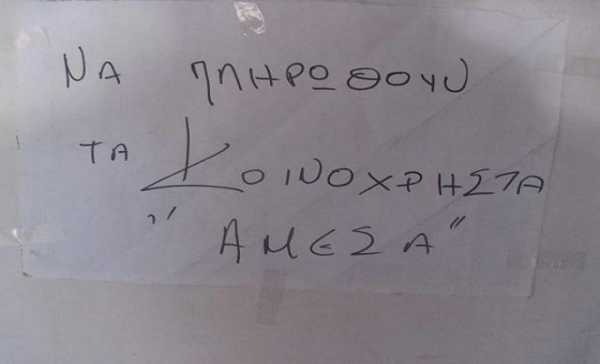 ΝΑ ΠΛΗΡΩΘΟΥΝ
ΤΑ ΚΟΙΝΟΧΡΗΣΤΑ
"ΑΜΕΣΑ"